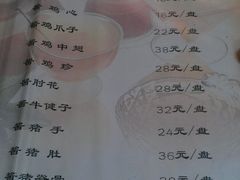 酱鸡心 16元/盘
酱鸡爪子 22元/盘
酱鸡中翅 38元/盘
酱鸡珍 28元/盘
酱肘花 28元/盘
酱牛健子 32元/盘
酱猪手 24元/盘
酱猪肚 36元/盘
酱猪脊骨 28元/盘